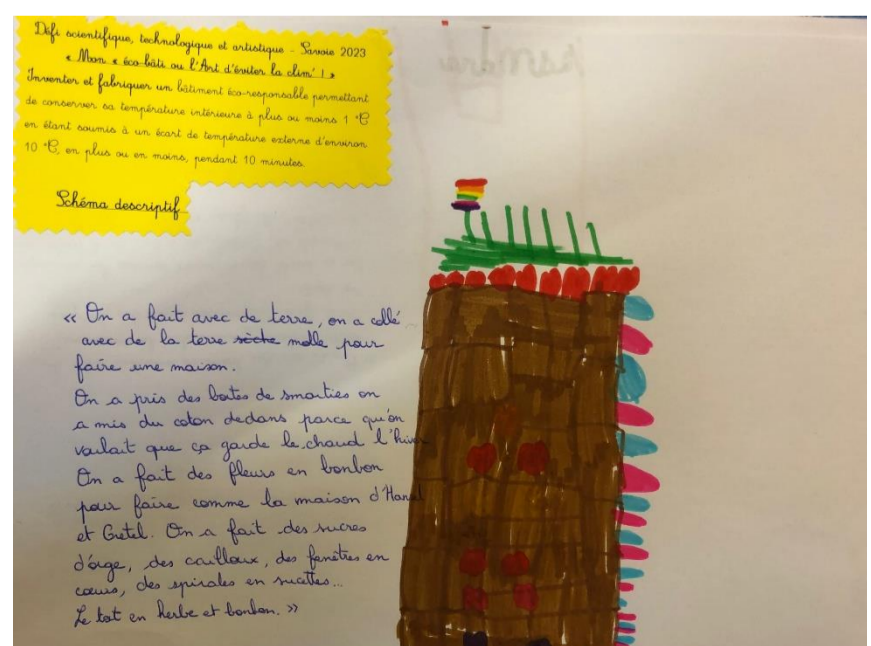 Défi scientifique, technologique et artistique - Savoie 2023
« Mon « éco-bâti ou l'Art d'éviter la clim' ! »
Inventer et fabriquer un bâtiment éco-responsable permettant
de conserver sa température intérieure à plus ou moins 1 °C
en étant soumis à un écart de température externe d'environ
10 °C, en plus ou en moins, pendant 10 minutes.
Schéma descriptif
« On a fait avec de terre, on a collé
avec de la terre sèche molle pour
faire une maison.
On a pris des boites de smarties on
a mis du coton dedans parce qu'on
voulait que ça garde le chaud l'hiver
On a fait des fleurs en bonbon
pour faire comme la maison d'Hansel
et Gretel. On a fait des sucres
d'orge, des cailloux, des fenêtres en
cœurs, des spirales en sucettes...
Le toit en herbe et bonbon. »